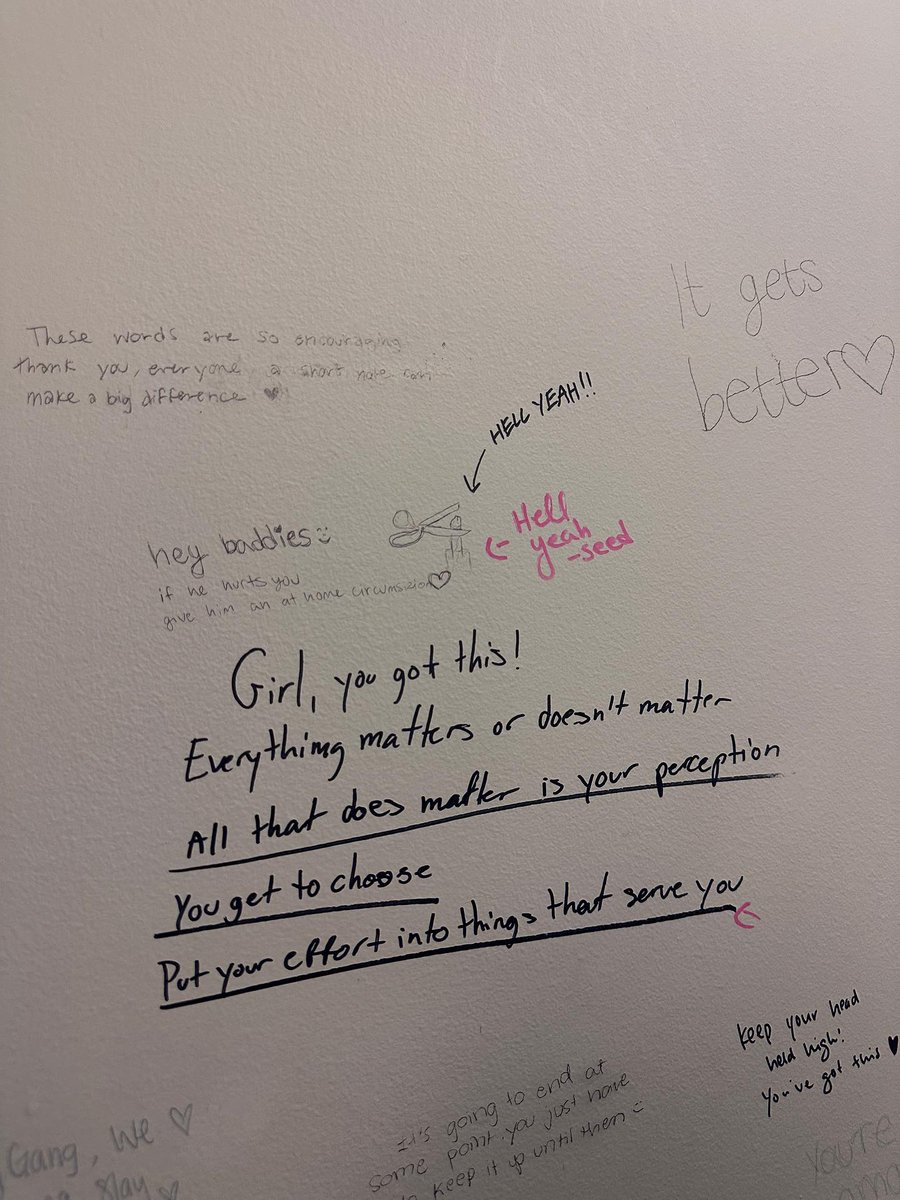 It gets
better♡
These words are so encouraging
thank you, everyone, a short note can
make a big difference ♥
HELL YEAH!!
Hell
yeah
-seed
hey baddies:)
if he hurts you
give him an at home circumsizion♡
Girl, you got this!
Everything matters or doesn't matter
All that does matter is your perception
You get to choose
Put your effort into things that serve you
keep your head
held high!
You've got this ♥
It's going to end at
some point you just have
to keep it up until then :)
Gang, We ♡
slay
You're